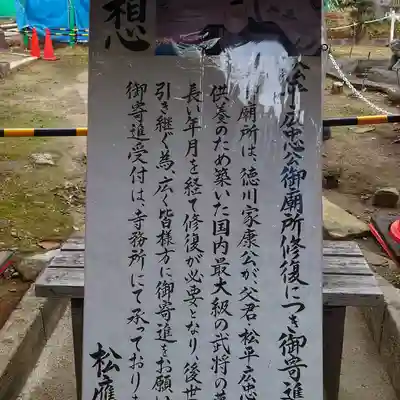 松平広忠公御廟所修復につき御寄進
廟所は、徳川家康公が、父君・松平広忠
供養のため築いた国内最大級の武将の墓
長い年月を経て修復が必要となり、後世
引き継ぐ為、広く皆様方に御寄進をお願い
御寄進受付は、寺務所にて承っており
松應
想